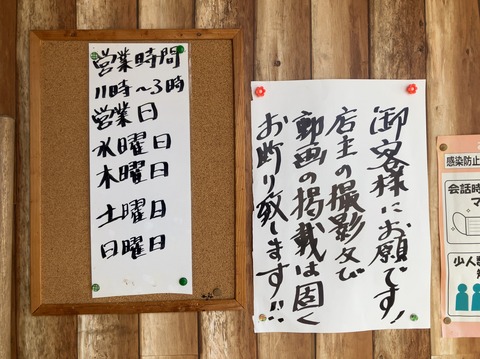 営業時間
11時～3時
営業日
水曜日
木曜日
土曜日
日曜日
御客様にお願です!
店主の撮影及び
動画の掲載は固く
お断り致します!!
感染防止
会話時
マ
少人数